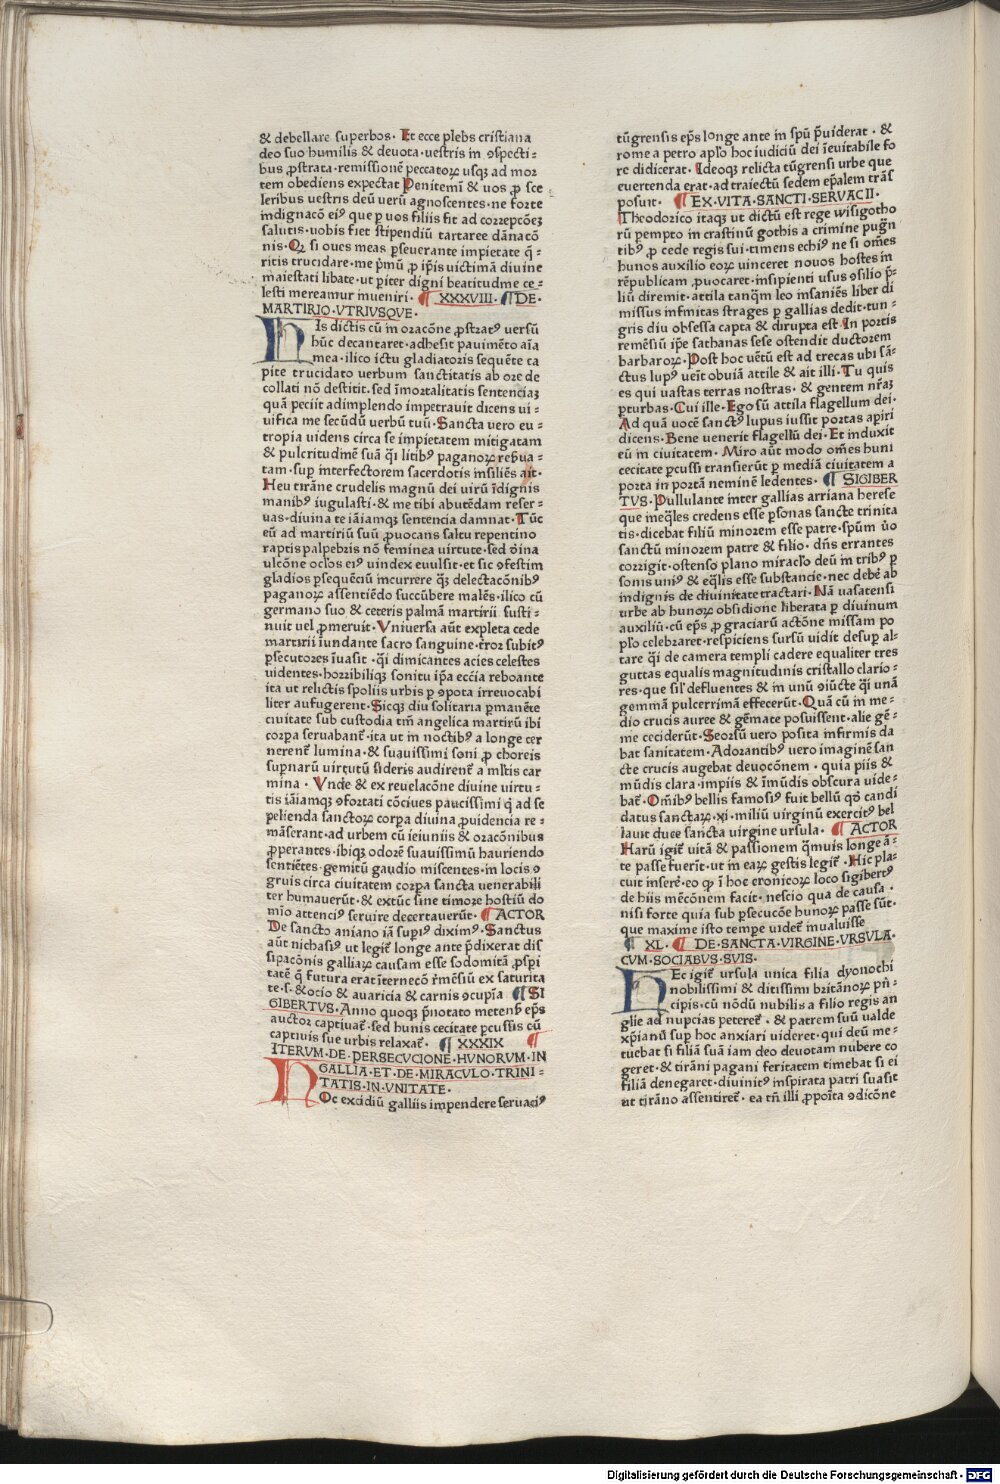 & debellare superbos· Et ecce plebs cristiana
deo suo humilis & deuota·uestris in ꝯspecti⸗
bus ꝓstrata·remissionē peccatoꝝ usqꝫ ad mor
tem obediens expectat Penitemī & uos ꝓ sce
leribus uestris deū uerū agnoscentes·ne forte
indignacō eiꝰ que p uos filiis fit ad correpcōeꝫ
salutis·uobis fiet stipendiū tartaree dānacō
nis·Qꝛ si oues meas pseuerante impietate q̄⸗
ritis trucidare·me pmū ꝓ ipīs uictimā diuine
maiestati libate·ut piter digni beatitudine ce⸗
lesti mereamur inueniri· XXXVIII· DE·
MARTIRIO·VTRIVSQVE·
His dictis cū in oracōne ꝓstratꝰ uersū
hūc decantaret·adhesit pauimēto aīa
mea·ilico ictu gladiatoris sequēte ca
pite trucidato uerbum sanctitatis ab ore de
collati nō destitit·sed īmortalitatis sentenciaꝫ
quā peciit adimplendo impetrauit dicens ui⸗
uifica me secūdū uerbū tuū·Sancta uero eu⸗
tropia uidens circa se impietatem mitigatam
& pulcritudinē suā q̄i litibꝰ paganoꝝ reſuā⸗
tam·sup interfectorem sacerdotis insiliēs ait·
Heu tirāne crudelis magnū dei uirū īdignis
manibꝰ iugulasti·& me tibi abutēdam reser⸗
uas·diuina te iāiamqꝫ sentencia damnat·Tūc
eū ad martiriū suū ꝓuocans saltu repentino
raptis palpebris nō feminea uirtute·sed diuina
ulcōne oclōs eiꝰ uindex euulsit·et sic ꝯfestim
gladios psequēciū incurrere qꝫ delectacōnibꝰ
paganoꝝ assentiēdo succūbere malēs·ilico cū
germano suo & ceteris palmā martirii susti⸗
nuit uel ꝓmeruit·Vniuersa aūt expleta cede
martirii īundante sacro sanguine·rror subitꝰ
psecutores īuasit·q̄i dimicantes acies celestes
uidentes·horribiliqꝫ sonitu ipā eccīa reboante
ita ut relictis spoliis urbis p ꝯpota irreuocabi
liter aufugerent·Sicqꝫ diu solitaria pmanēte
ciuitate sub custodia tm̄ angelica martirū ibi
corpa seruabant·ita ut in noctibꝰ a longe cer
nerent lumina·& suauissimi soni ꝓ choreis
supnarū uirtutū sideris audirent a mltis car
mina·Vnde & ex reuelacōne diuine uirtu⸗
tis iāiamqꝫ ꝯfortati cōciues paucissimi q ad se
pelienda sanctoꝝ corpa diuina ꝓuidencia re⸗
māserant·ad urbem cū ieiuniis & oracōnibus
ꝓperantes·ibiqꝫ odorē suauissimū hauriendo
sentiētes·gemitū gaudio miscentes·in locis ꝯ
gruis circa ciuitatem corpa sancta uenerabili
ter humauerūt·& extūc sine timore hostiū do
mīo attenciꝰ seruire decertauerūt· ACTOR
De sancto aniano iā supiꝰ diximꝰ·Sanctus
aūt nichasiꝰ ut legit longe ante pdixerat dis
sipacōnis galliaꝝ causam esse sodomitā ꝓspri
tatē q̄ futura erat īterneciō rēmēsiū ex saturita
te·s·&ocio & auaricia & carnis ꝯcupīa SI
GIBERTVS·Anno quoqꝫ pnotato metenſ epꝰs
auctor captiuat·sed hunis cecitate pcussis cū
captiuis sue urbis relaxat· XXXIX
ITERVM·DE·PERSECVCIONE·HVNORVM·IN
GALLIA·ET·DE·MIRACVLO·TRINI⸗
TATIS·IN·VNITATE·
Hoc excidiū galliis impendere seruaciꝰ
tūgrensis ep̄s longe ante in spū puiderat·&
rome a petro aplo hoc iudiciū dei īeuitabile fo
re didicerat·Ideoqꝫ relicta tūgrensi urbe que
euertenda erat·ad traiectū sedem ep̄alem trās
posuit· EX·VITA·SANCTI·SERVACII·
Theodorico itaqꝫ ut dictū est rege wisigotho
rū pempto in crastinū gothis a crimine pugn
tibꝰ ꝓ cede regis sui·timens echiꝰ ne si om̄es
hunos auxilio eoꝝ uinceret nouos hostes in
rēpublicam ꝓuocaret·insipienti usus ꝯsilio p
liū diremit·attila tanqm leo insaniēs liber di
missus infinitas strages p gallias dedit·tun⸗
gris diu obsessa capta & dirupta est In portis
remēsiū ipē sathanas sese ostendit ductorem
barbaroꝝ·Post hoc uētū est ad trecas ubi sā⸗
ctus lupꝰ ueīt obuiā attile & ait illi·Tu quis
es qui uastas terras nostras·& gentem nraꝫ
pturbas·Cui ille·Ego sū attila flagellum dei·
Ad quā uocē sanctꝰ lupus iussit portas apiri
dicens·Bene uenerit flagellū dei·Et induxit
eū in ciuitatem·Miro aūt modo om̄es huni
cecitate pcussi transierūt p mediā ciuitatem a
porta in portā neminē ledentes· SIGIBER
TVS·Pullulante inter gallias arriana herese
que ineqles credens esse psonas sancte trinita
tis·dicebat filiū minorem esse patre·spūm uo
sanctū minorem patre & filio·dn̄s errantes
corrigit·ostenso plano miraclo deū in tribꝰ p
sonis uniꝰ & eqlis esse substancie·nec debē ab
indignis de diuinitate tractari·Nā uasatensi
urbe ab hunoꝝ obsidione liberata p diuinum
auxiliū·cū ep̄s ꝓ graciarū actōne missam po
plo celebraret·respiciens sursū uidit desup al⸗
tare q̄i de camera templi cadere equaliter tres
guttas equalis magnitudinis cristallo clario⸗
res·que sil defluentes & in unū ꝯiūcte q̄i unā
gemmā pulcerrimā effecerūt·Quā cū in me⸗
dio crucis auree & gēmate posuissent·alie gē⸗
me ceciderūt·Seorsū uero posita infirmis da
bat sanitatem·Adorantibꝰ uero imaginē san
cte crucis augebat deuocōnem·quia piis &
mūdis clara·impiis & īmūdis obscura uide⸗
bat·Om̄ibꝰ bellis famosiꝰ fuit bellū qd candi
datus sanctaꝝ·xi·miliū uirginū exercitꝰ bel
lauit duce sancta uirgine ursula· ACTOR
Harū igit uitā & passionem qmuis longe ā⸗
te passe fuerīt·ut in eaꝝ gestis legit·Hic pla⸗
cuit insere·eo ꝙ ī hoc cronicoꝝ loco sigibertꝰ
de hiis mēcōnem facit·nescio qua de causa·
nisi forte quia sub psecucōe hunoꝝ passe sūt·
que maxime isto tempe uidet inualuisse
XL· DE·SANCTA·VIRGINE·VRSVLA·
CVM·SOCIABVS·SVIS·
Hec igit ursula unica filia dyonochi
nobilissimi & ditissimi britānoꝝ pn̄⸗
cipis·cū nōdū nubilis a filio regis an
glie ad nupcias peteret·& patrem suū ualde
xp̄ianū sup hoc anxiari uideret·qui deū me⸗
tuebat si filiā suā iam deo deuotam nubere co
geret·& tirāni pagani feritatem timebat si ei
filiā denegaret·diuinitꝰ inspirata patri suasit
ut tirāno assentiret·ea tn̄ illi ꝓpoita ꝯdicōne
Digitalisierung gefördert durch die Deutsche Forschungsgemeinschaft - DFG